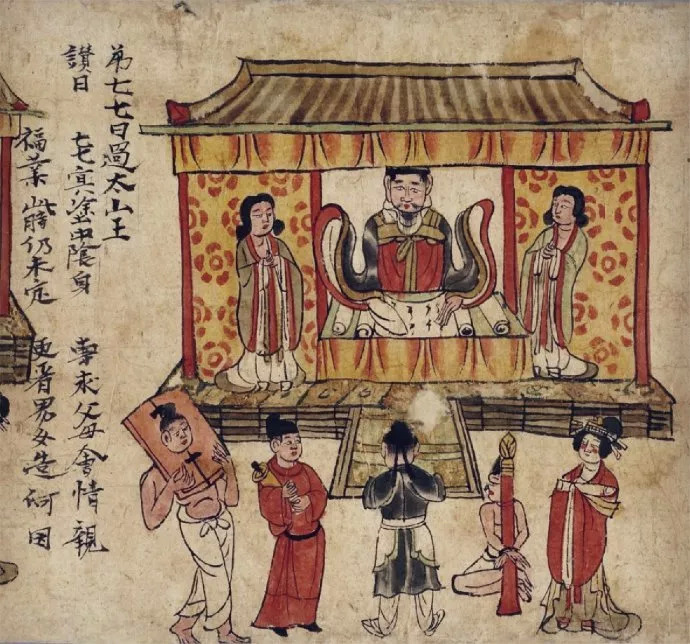 弟七七日過太山王
讃曰 七七冥途中陰身 專求父母會情親
福業此時仍未定 更看男女造何因